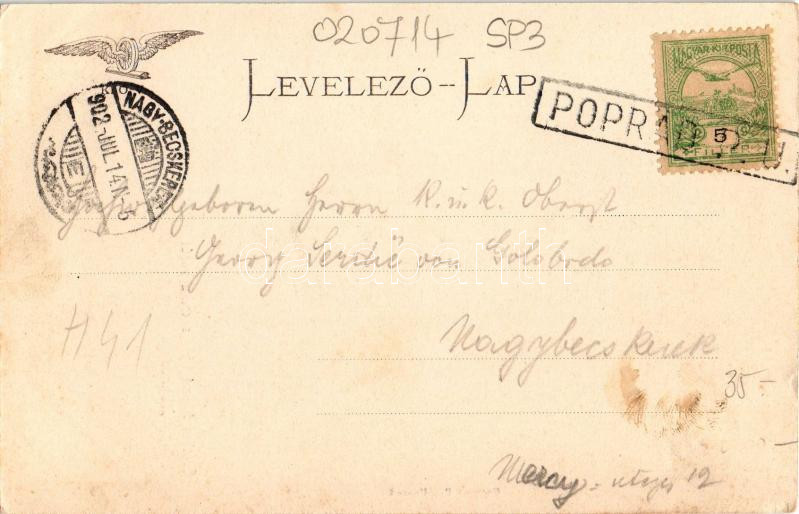 020714 SP3
LEVELEZŐ--LAP
MAGYAR·KIR·POSTA
5
FILLÉR
POPRÁD
NAGY-BECSKEREK
902 JUL 14
Hochwohlgeboren Herrn K. u. K. Oberst
Georg Serdić von Golobrdo
darabanth
H41
Nagybecskerek
35-
Mercy-utcza 12